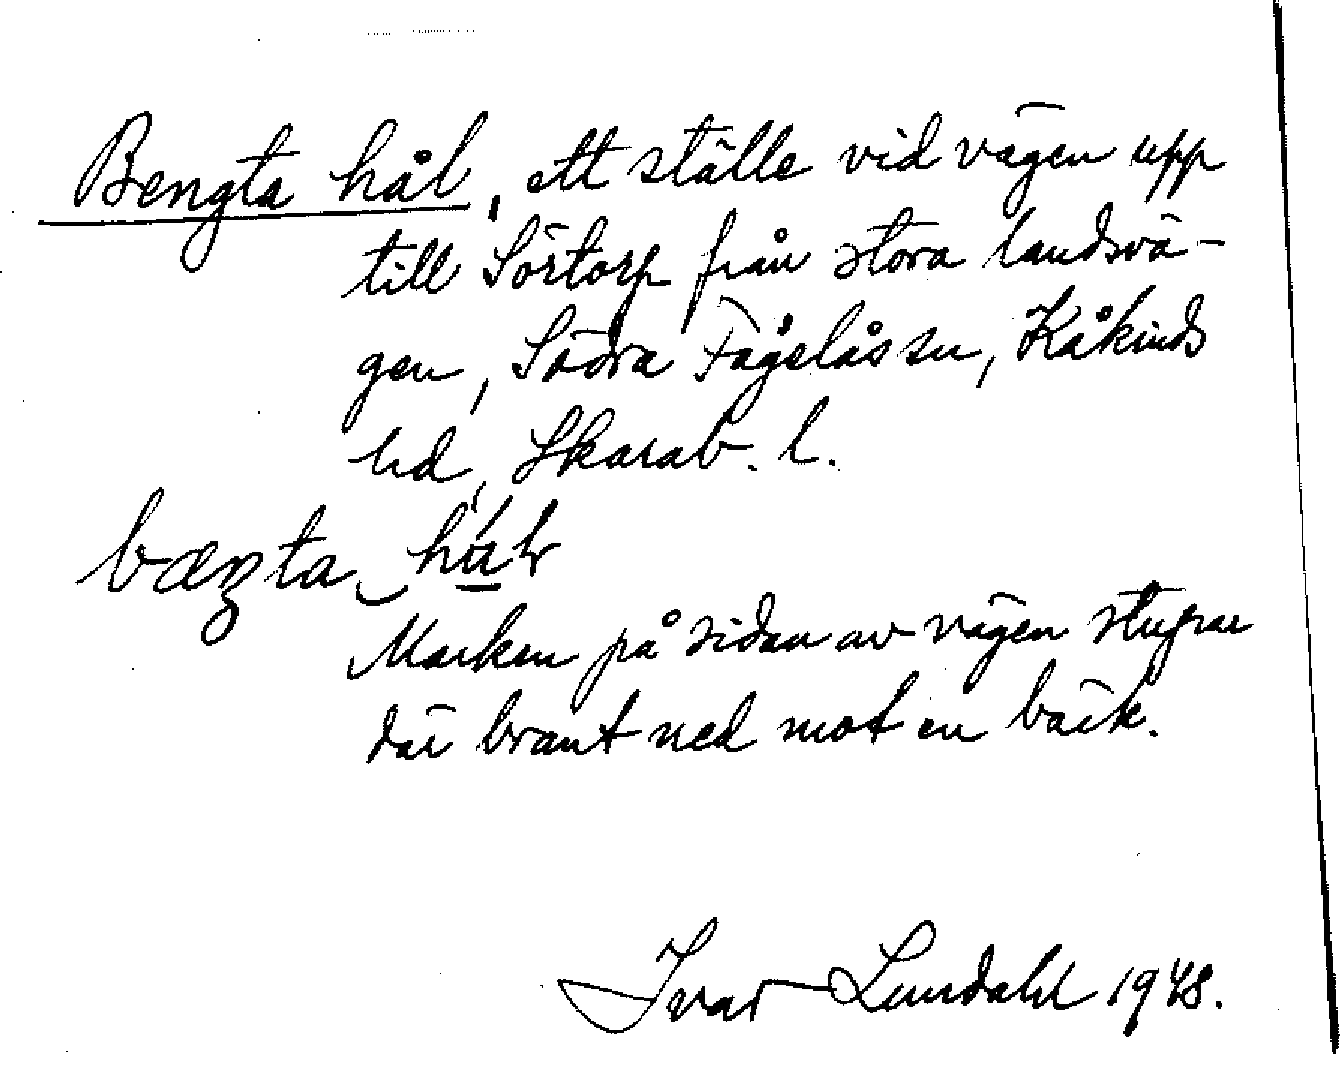 Bengta hål, ett ställe vid vägen upp
till Sörtorp från stora landsvä-
gen, Södra Fågelås sn, Kåkinds
hd, Skarab. l.
bæŋta
Marken på sidan av vägen stupar
där brant ned mot en bäck.
Ivar Lundahl 1948.